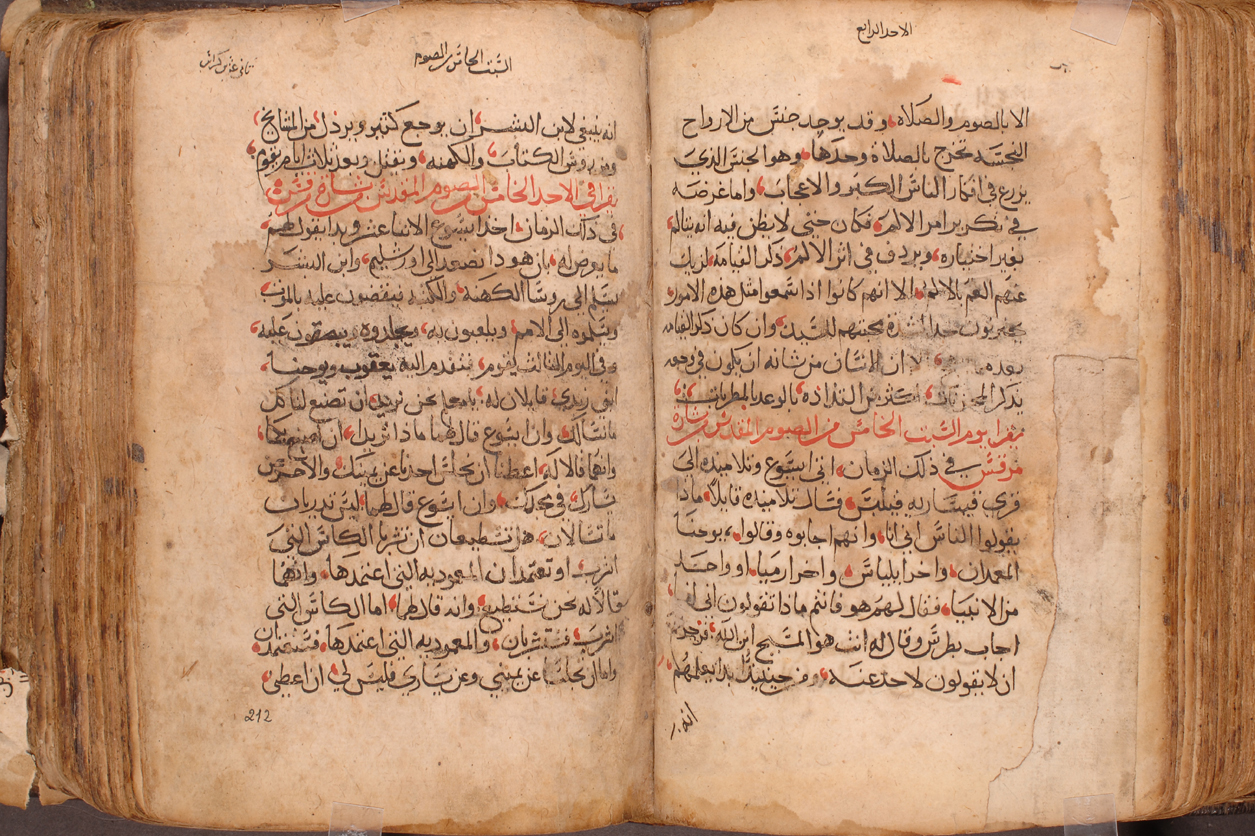 الاحد الرابع
الا بالصوم والصلاه وقد يوجد جنس من الارواح
النجسه تخرج بالصلاة وحدها وهو الجنس الذي
يزرع في افكار الناس الكبر والاعجاب واما غرضه
في تكرير امر الالم فكان حتى لا يظن فيه انه يتالم
بغير اختياره ويردف في اثر الالم ذكر القيامه ليزيل
عنهم الغم بالالم الا انهم كانوا اذا سمعوا مثل هذه الامور
محبتهم للسيد وان كان ذكر القيامه
بعده الا ان الانسان من شانه ان يكون في وجعه
بذكر اكثر من التذاذه بالوعد بالمطربات
يقرا يوم السبت الخامس من الصوم المقدس بشارة
مرقس في ذلك الزمان اتى ايسوع وتلاميذه الى
قرى قيساريه فيلبس فسال تلاميذه قايلا ماذا
يقولوا الناس اني انا وانهم اجابوه وقالوا يوحنا
المعمدان واخر ايلياس واخر ارميا او واحد
من الانبيا فقال لهم هو فانتم ماذا تقولون اني انا
اجاب بطرس وقال له انت هو المسيح ابن الله فزجرهم
ان لا يقولون لاحد عنه ومن حينيذ بدا يعلمهم
انه
السبت الخامس الصوم
ثاني عشر كراس
انه ينبغي لابن البشر ان يوجع كثير ويرذل من المشايخ
ومن روس الكتاب والكهنه ويقتل وبعد ثلاث ايام يقوم
يقرا في الاحد الخامس الصوم المقدس بشارة مرقس
في ذلك الزمان اخذ ايسوع الاثنا عشر وبدا يقول لهم
ما يعرض له بان هودا نصعد الى اورشليم وابن البشر
يسلم الى روسا الكهنه والكتبه فيقضون عليه بالموت
ويسلموه الى الامم ويلعبون به ويجلدوه ويبصقون عليه
وفي اليوم الثالث يقوم فتقدم اليه يعقوب ويوحنا
ابني زبدي قايلان له يامعلم نحن نريد ان تصنع لنا كل
ما نسالك وان ايسوع قال لهما ماذا تريدا ان اصنع لكما
وانهما قالا له اعطنا ان نجلس احدنا عن يمينك والاخر عن
يسارك في مجدك وان ايسوع قال لهما لستما تدريان
ما تسالان هل تستطيعان ان تشربا الكاس التي
اشرب او تعتمدان المعموديه التي اعتمدها وانهما
قالا له نحن نستطيع وانه قال لهما اما الكاس التي
اشرب فستشربان والمعموديه التي اعتمدها فستعتمدان
واما ان تجلسا عن يميني وعن يساري فليس لي ان اعطي
212